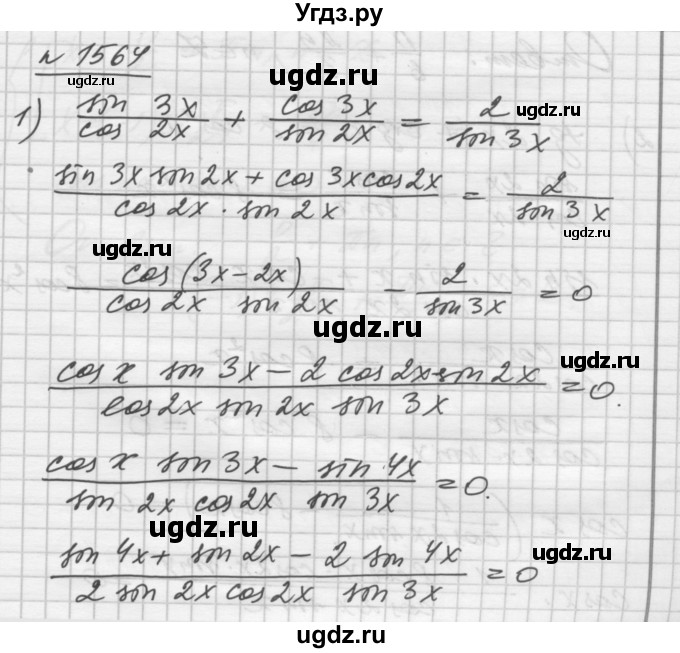 Угдз.ру
n 1564
ugdz.ru
ugdz.ru
1) sin 3x / cos 2x + cos 3x / sin 2x = 2 / sin 3x
ugdz.ru
ugdz.ru
sin 3x sin 2x + cos 3x cos 2x / cos 2x · sin 2x = 2 / sin 3x
ugdz.ru
ugdz.ru
cos (3x - 2x) / cos 2x sin 2x - 2 / sin 3x = 0
ugdz.ru
ugdz.ru
cos x sin 3x - 2 cos 2x sin 2x / cos 2x sin 2x sin 3x = 0.
ugdz.ru
cos x sin 3x - sin 4x / sin 2x cos 2x sin 3x = 0.
ugdz.ru
ugdz.ru
sin 4x + sin 2x - 2 sin 4x / 2 sin 2x cos 2x sin 3x = 0
ugdz.ru
ugdz.ru